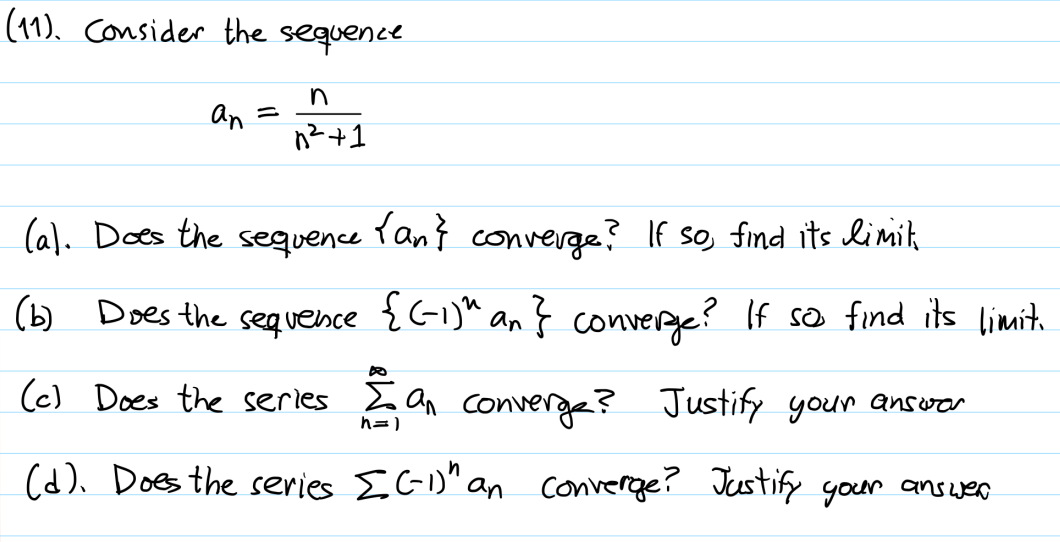 (11). Consider the sequence
aₙ = n / (n² + 1)
(a). Does the sequence {aₙ} converge? If so, find its limit.
(b) Does the sequence {(-1)ⁿ aₙ} converge? If so find its limit.
(c) Does the series ∑_{n=1}^{∞} aₙ converge? Justify your answer
(d). Does the series ∑(-1)ⁿ aₙ converge? Justify your answer